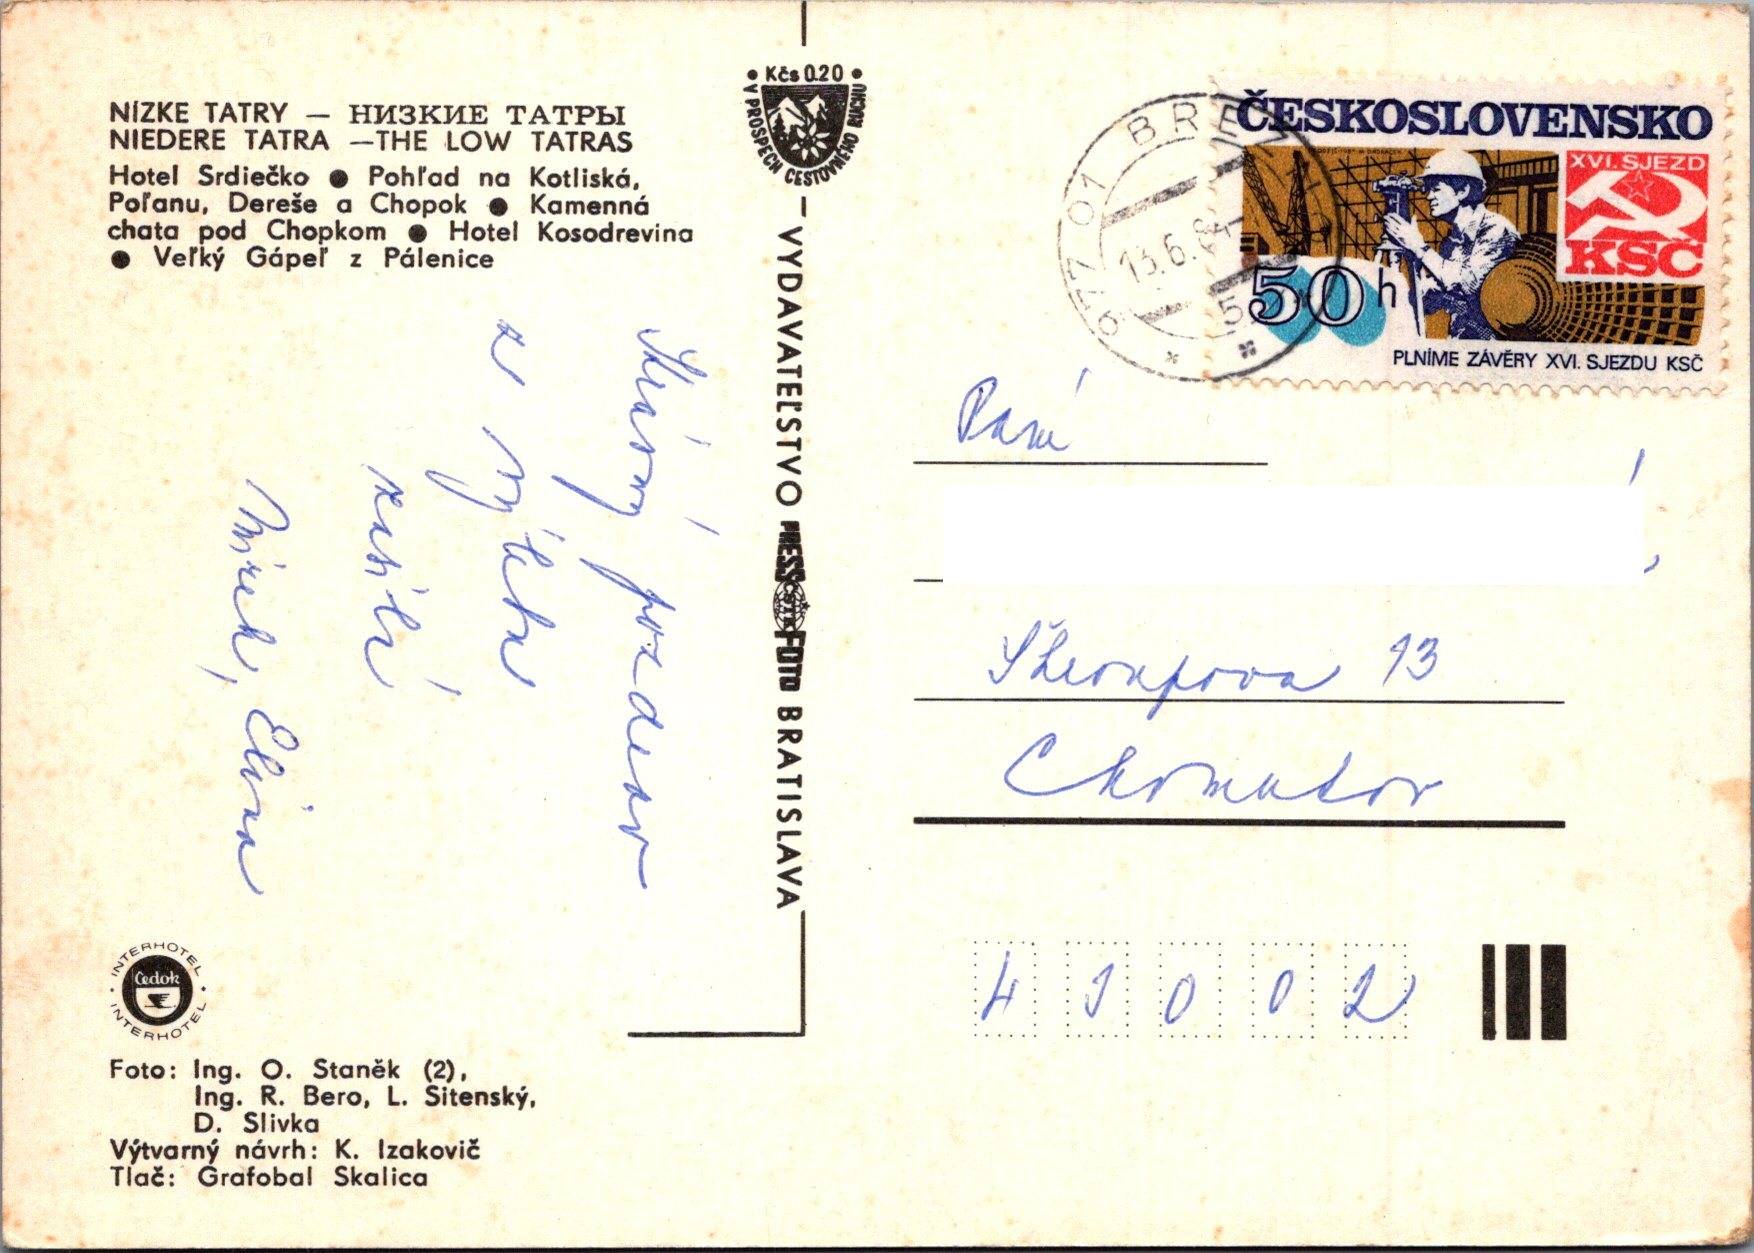 NÍZKE TATRY — НИЗКИЕ ТАТРЫ
NIEDERE TATRA —THE LOW TATRAS
Hotel Srdiečko ● Pohľad na Kotliská,
Poľanu, Dereše a Chopok ● Kamenná
chata pod Chopkom ● Hotel Kosodrevina
● Veľký Gápeľ z Pálenice
Krásný pozdrav
z výletu
zasílí
Mirek, Elina
INTERHOTEL
Čedok
INTERHOTEL
Foto: Ing. O. Staněk (2),
Ing. R. Bero, L. Sitenský,
D. Slivka
Výtvarný návrh: K. Izakovič
Tlač: Grafobal Skalica
• Kčs 0.20 •
V PROSPECH CESTOVNÉHO RUCHU
— VYDAVATEĽSTVO PRESSFOTO BRATISLAVA
ČSTK
977 01 BREZNO
13.6.
5
ČESKOSLOVENSKO
XVI. SJEZD
KSČ
50 h
PLNÍME ZÁVĚRY XVI. SJEZDU KSČ
Paní
Škroupova 13
Chomutov
43002